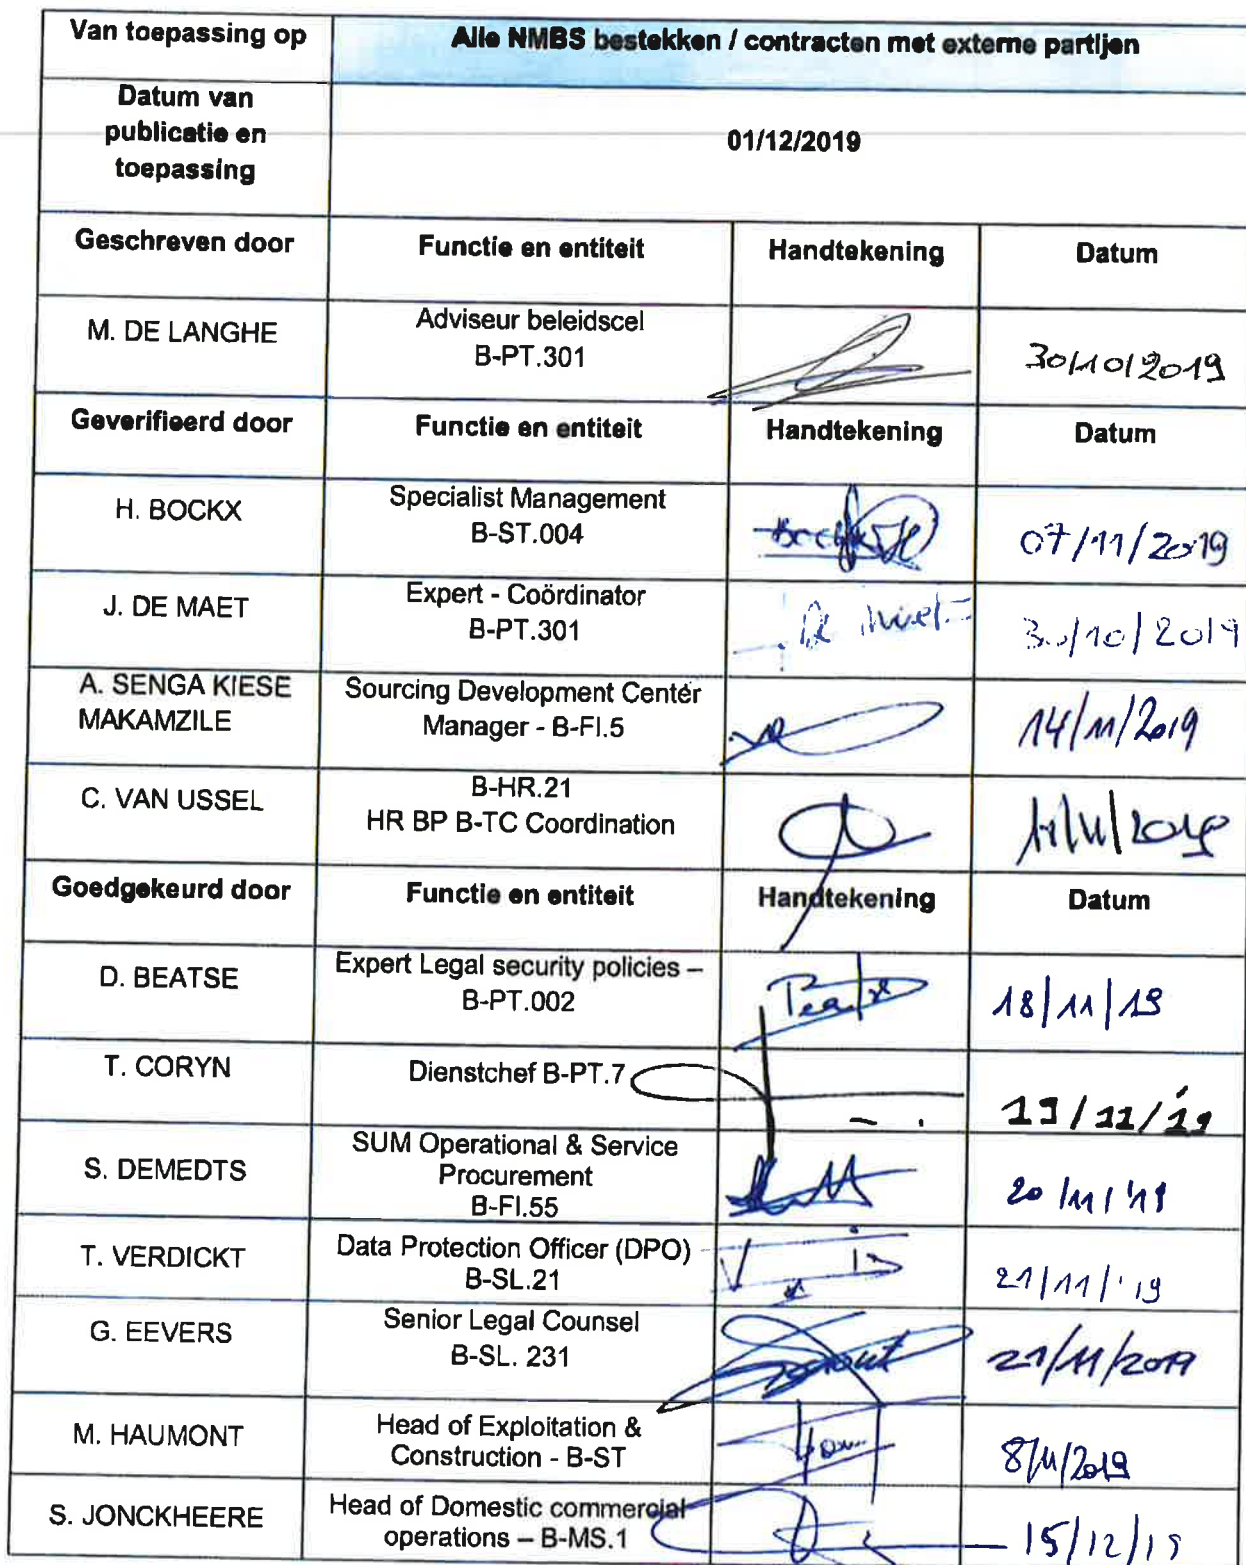 Van toepassing op
Alle NMBS bestekken / contracten met externe partijen
Datum van
publicatie en
toepassing
01/12/2019
Geschreven door
Functie en entiteit
Handtekening
Datum
M. DE LANGHE
Adviseur beleidscel
B-PT.301
30/10/2019
Geverifieerd door
Functie en entiteit
Handtekening
Datum
H. BOCKX
Specialist Management
B-ST.004
07/11/2019
J. DE MAET
Expert - Coördinator
B-PT.301
De Maet
30/10/2019
A. SENGA KIESE
MAKAMZILE
Sourcing Development Center
Manager - B-FI.5
14/11/2019
C. VAN USSEL
B-HR.21
HR BP B-TC Coordination
Goedgekeurd door
Functie en entiteit
Handtekening
Datum
D. BEATSE
Expert Legal security policies –
B-PT.002
18/11/19
T. CORYN
Dienstchef B-PT.7
19/11/19
S. DEMEDTS
SUM Operational & Service
Procurement
B-FI.55
20/11/'19
T. VERDICKT
Data Protection Officer (DPO)
B-SL.21
21/11/'19
G. EEVERS
Senior Legal Counsel
B-SL. 231
21/11/2019
M. HAUMONT
Head of Exploitation &
Construction - B-ST
8/11/2019
S. JONCKHEERE
Head of Domestic commercial
operations – B-MS.1
15/12/19